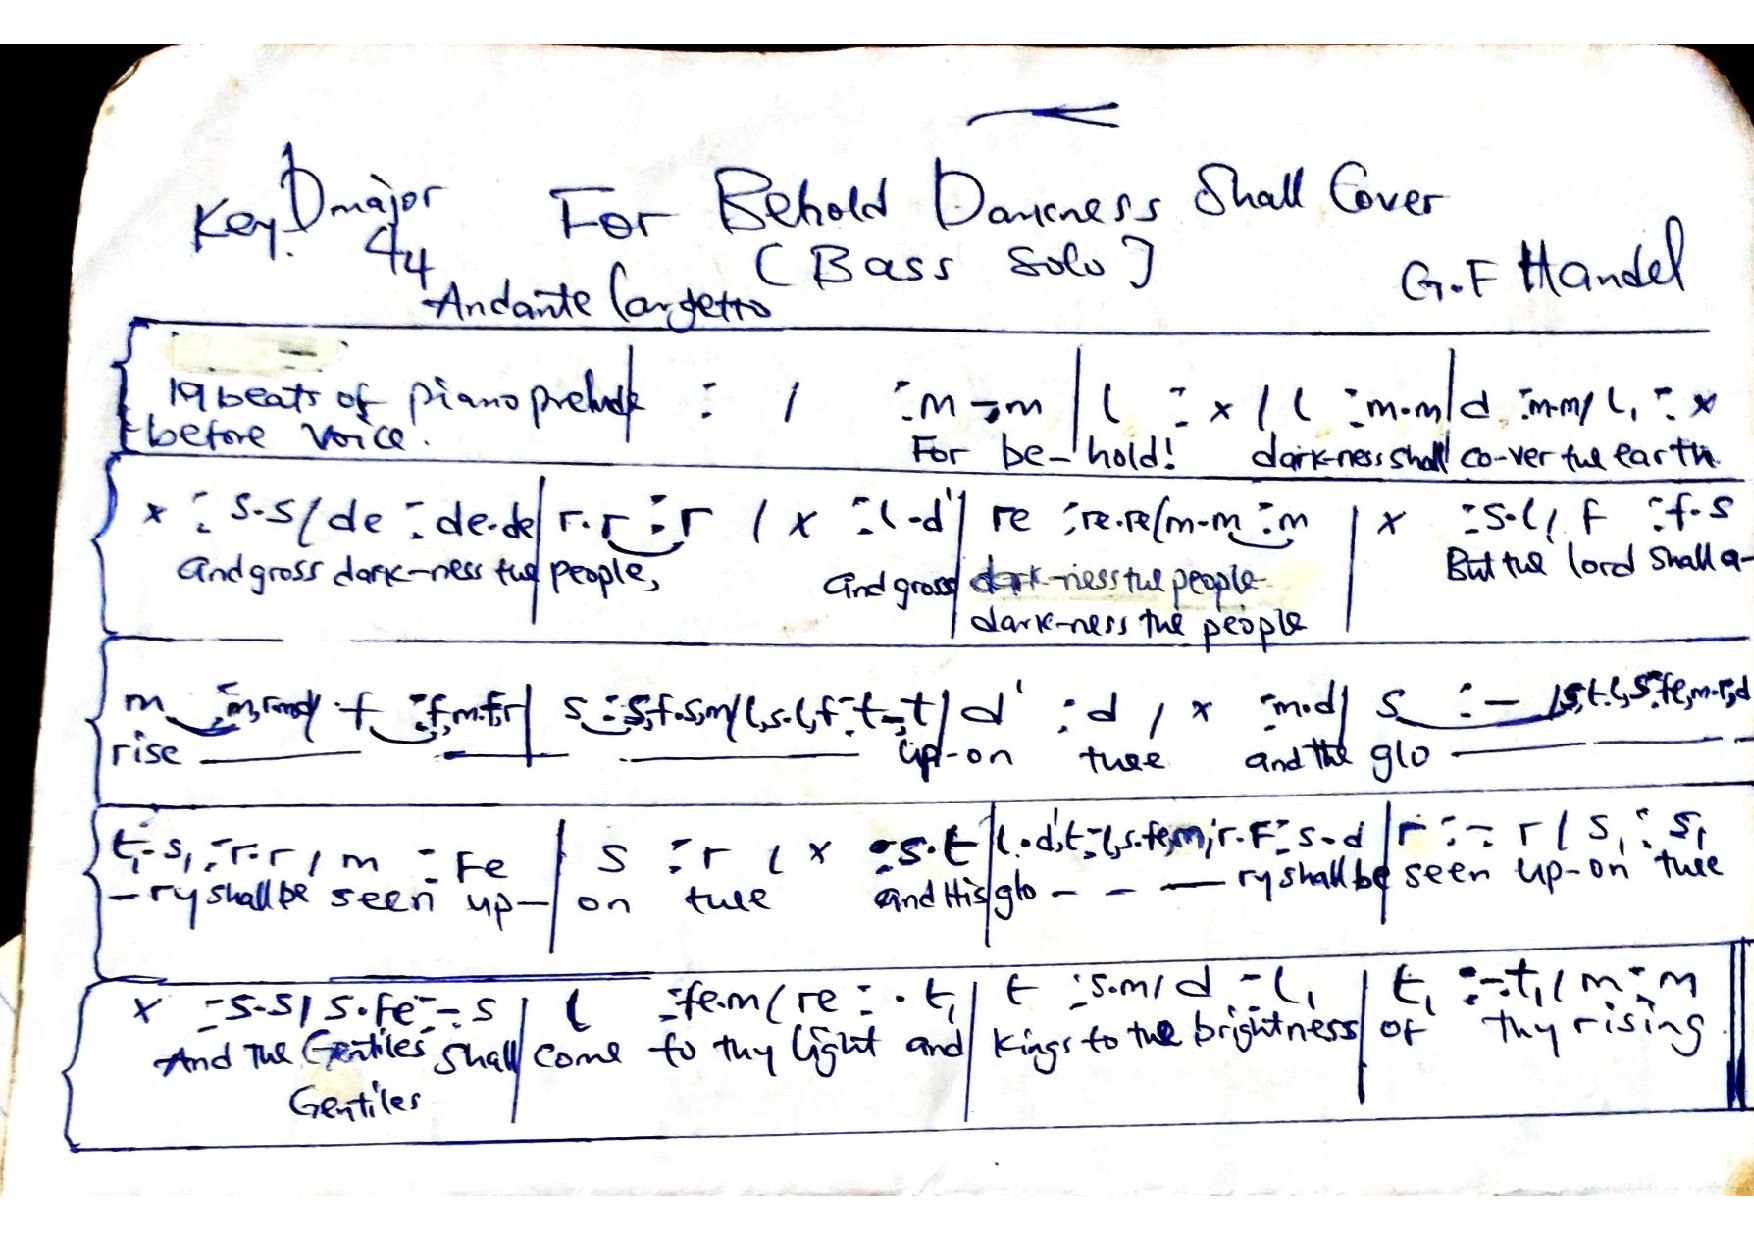 Key D major For Behold Darkness Shall Cover
4/4 [Bass Solo] G.F Handel
Andante largetto
19 beats of piano prelude | : / :m-,m | l : x / l :m.m | d :m.m/ l, : x
before voice. For be- hold! dark-ness shall co-ver the earth.
x : s.s/ de : de.de | r.r : r / x : l.d' | re :re.re/m.m :m | x :s.l/ f :f.s
and gross dark-ness the people, and gross dark-ness the people But the lord shall a-
dark-ness the people
m :m,r.m,d/ f :f,m.f,r | s :s,f.s,m/l,s.l,f:t-,t | d' :d / x :m.d | s :- /s,t.l,s:fe,m.r,d
rise up-on thee and the glo
t,.s, :r.r / m :fe | s :r / x :s.t | l.d',t:l,s.fe,m/r.f:s.d | r :- r / s, :s,
-ry shall be seen up- on thee and His glo - - - ry shall be seen up-on thee
x :s.s/ s.fe:-.s | l :fe.m/ re :.t, | t :s.m/ d :-l, | t, :-.t,/ m:m
And the Gentiles shall come to thy light and kings to the brightness of thy rising
Gentiles